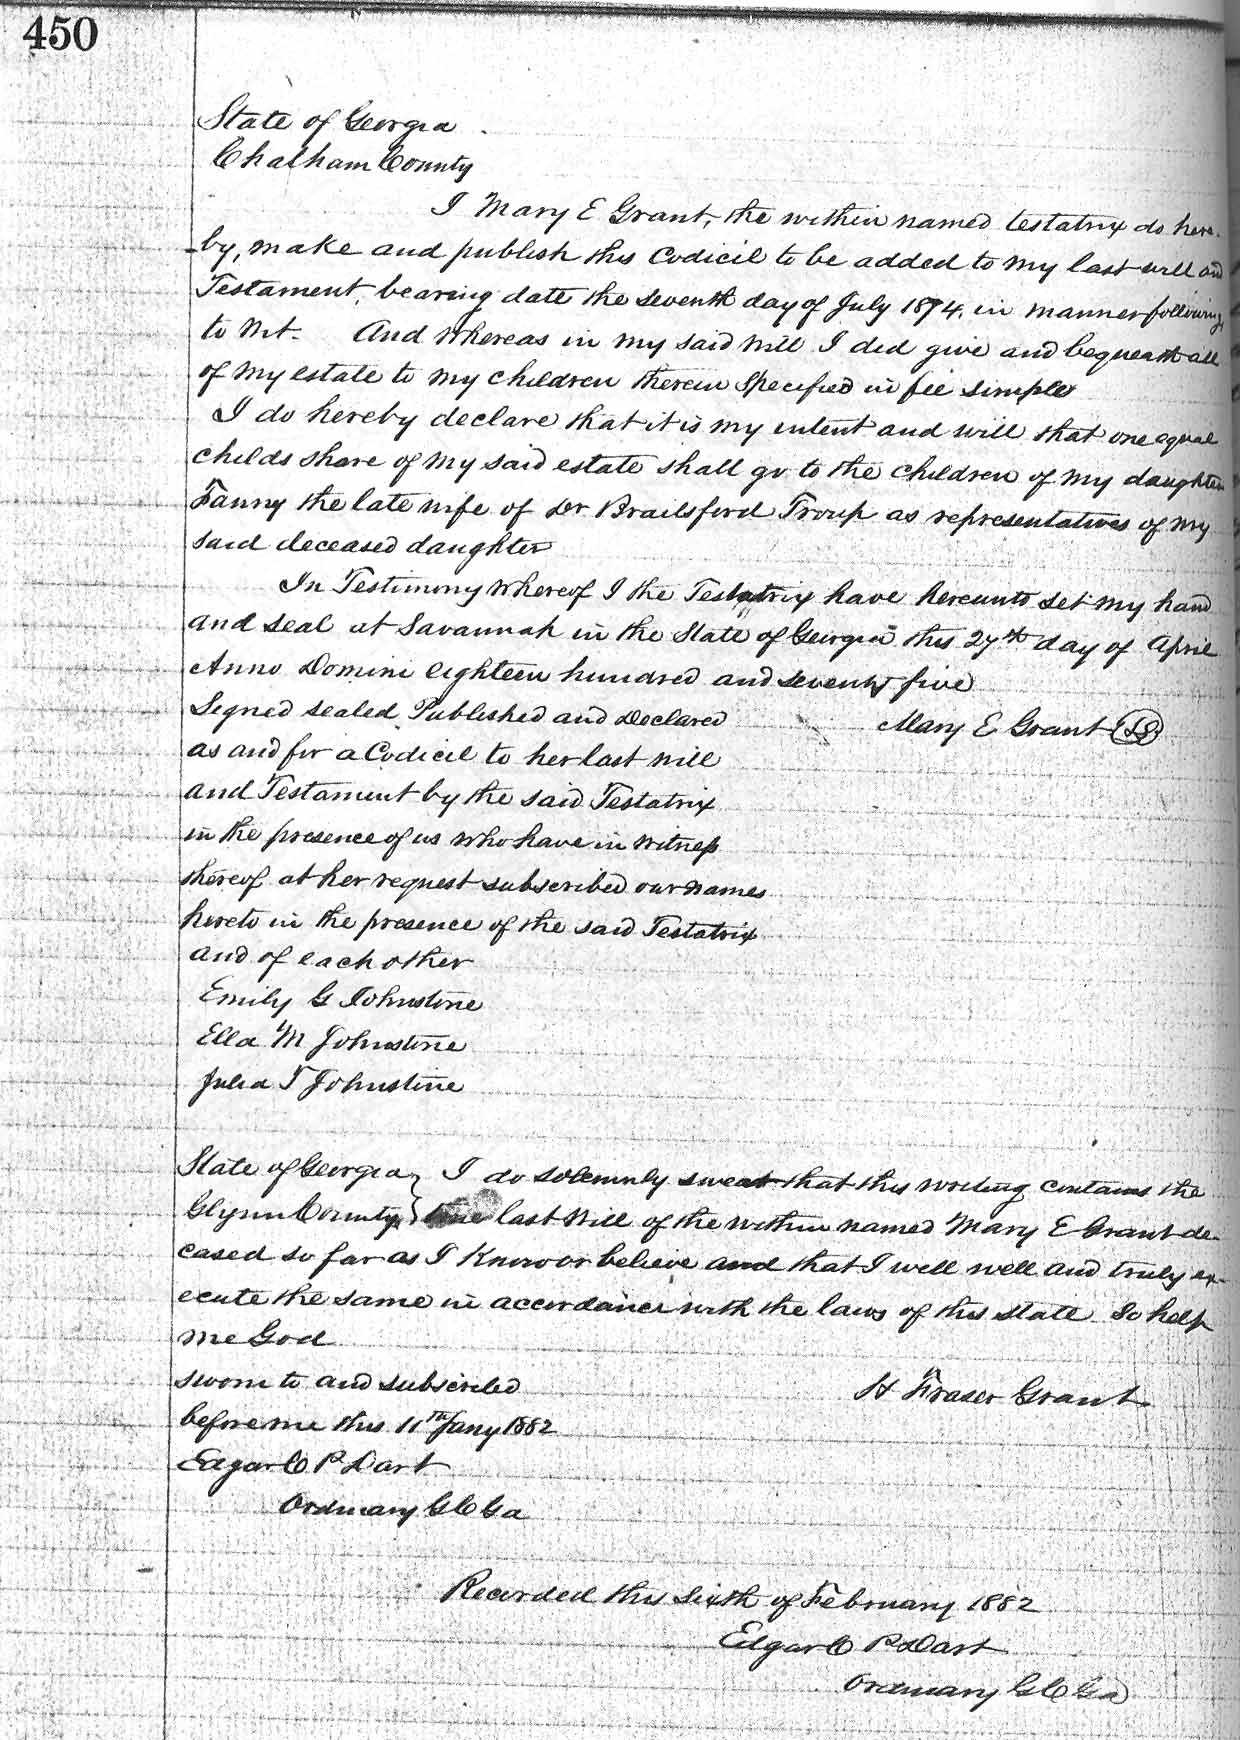 450
State of Georgia
Chatham County
I Mary E Grant, the within named testatrix do here-
by, make and publish this Codicil to be added to my last will and
Testament, bearing date the seventh day of July 1874, in manner following,
to wit. And whereas in my said will I did give and bequeath all
of my estate to my children therein specified in fee simple
I do hereby declare that it is my intent and will that one equal
childs share of my said estate shall go to the children of my daughter
Fanny the late wife of Dr Brailsford Troup as representatives of my
said deceased daughter
In Testimony whereof I the Testatrix have hereunto set my hand
and seal at Savannah in the State of Georgia this 27th day of April
Anno Domini eighteen hundred and seventy five
Signed sealed Published and Declared Mary E Grant LS
as and for a Codicil to her last will
and Testament by the said Testatrix
in the presence of us who have in witness
thereof at her request subscribed our names
hereto in the presence of the said Testatrix
and of each other
Emily G Johnstone
Ella M Johnstone
Julia T Johnstone
State of Georgia } I do solemnly swear that this writing contains the
Glynn County } true last Will of the within named Mary E Grant de-
cased so far as I Know or believe and that I will well and truly ex-
ecute the same in accordance with the laws of this State So help
me God
sworn to and subscribed H Fraser Grant
before me this 11th Jany 1882
Edgar C P Dart
Ordinary G C Ga
Recorded this sixth of February 1882
Edgar C P Dart
Ordinary G C Ga